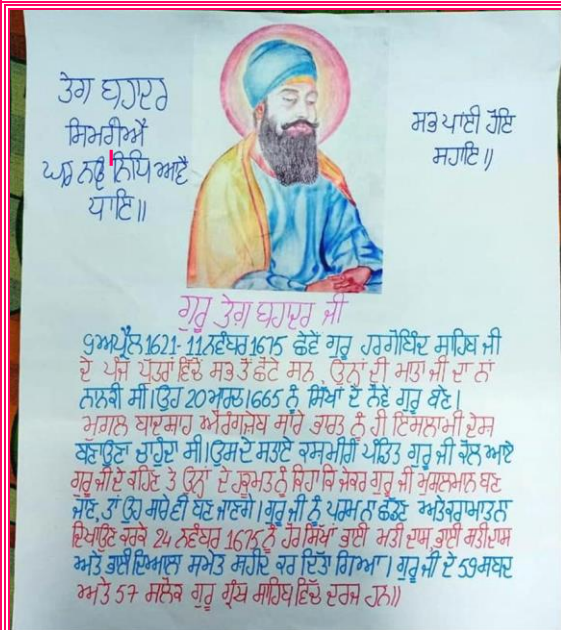 ਤੇਗ ਬਹਾਦਰ
ਸਿਮਰੀਐ
ਘਰ ਨਉ ਨਿਧਿ ਆਵੈ
ਧਾਇ॥
ਸਭ ਥਾਈ ਹੋਇ
ਸਹਾਇ॥
ਗੁਰੂ ਤੇਗ ਬਹਾਦਰ ਜੀ
9ਅਪ੍ਰੈਲ 1621- 11 ਨਵੰਬਰ 1675 ਛੇਵੇਂ ਗੁਰੂ ਹਰਗੋਬਿੰਦ ਸਾਹਿਬ ਜੀ
ਦੇ ਪੰਜ ਪੁਤਰਾਂ ਵਿੱਚੋਂ ਸਭ ਤੋਂ ਛੋਟੇ ਸਨ, ਉਨਾਂ ਦੀ ਮਾਤਾ ਜੀ ਦਾ ਨਾਂ
ਨਾਨਕੀ ਸੀ। ਉਹ 20 ਮਾਰਚ 1665 ਨੂੰ ਸਿੱਖਾਂ ਦੇ ਨੌਵੇਂ ਗੁਰੂ ਬਣੇ।
ਮੁਗਲ ਬਾਦਸ਼ਾਹ ਔਰੰਗਜੇਬ ਸਾਰੇ ਭਾਰਤ ਨੂੰ ਹੀ ਇਸਲਾਮੀ ਦੇਸ਼
ਬਣਾਉਣਾ ਚਾਹੁੰਦਾ ਸੀ। ਉਸਦੇ ਸਤਾਏ ਕਸ਼ਮੀਰੀ ਪੰਡਿਤ ਗੁਰੂ ਜੀ ਕੋਲ ਆਏ
ਗੁਰੂ ਜੀ ਦੇ ਕਹਿਣ ਤੇ ਉਨ੍ਹਾਂ ਦੇ ਹਕੂਮਤ ਨੂੰ ਕਿਹਾ ਕਿ ਜੇਕਰ ਗੁਰੂ ਜੀ ਮੁਸਲਮਾਨ ਬਣ
ਜਾਣ, ਤਾਂ ਉਹ ਸਾਰੇ ਵੀ ਬਣ ਜਾਣਗੇ। ਗੁਰੂ ਜੀ ਨੂੰ ਧਰਮ ਨਾ ਛੱਡਣ ਅਤੇ ਕਰਾਮਾਤ ਨਾ
ਦਿਖਾਉਣ ਕਰਕੇ 24 ਨਵੰਬਰ 1675 ਨੂੰ ਹੋਰ ਸਿੱਖਾਂ ਭਾਈ ਮਤੀ ਦਾਸ, ਭਾਈ ਸਤੀਦਾਸ
ਅਤੇ ਭਾਈ ਦਿਆਲਾ ਸਮੇਤ ਸ਼ਹੀਦ ਕਰ ਦਿੱਤਾ ਗਿਆ। ਗੁਰੂ ਜੀ ਦੇ 59 ਸ਼ਬਦ
ਅਤੇ 57 ਸਲੋਕ ਗੁਰੂ ਗ੍ਰੰਥ ਸਾਹਿਬ ਵਿੱਚ ਦਰਜ ਹਨ॥